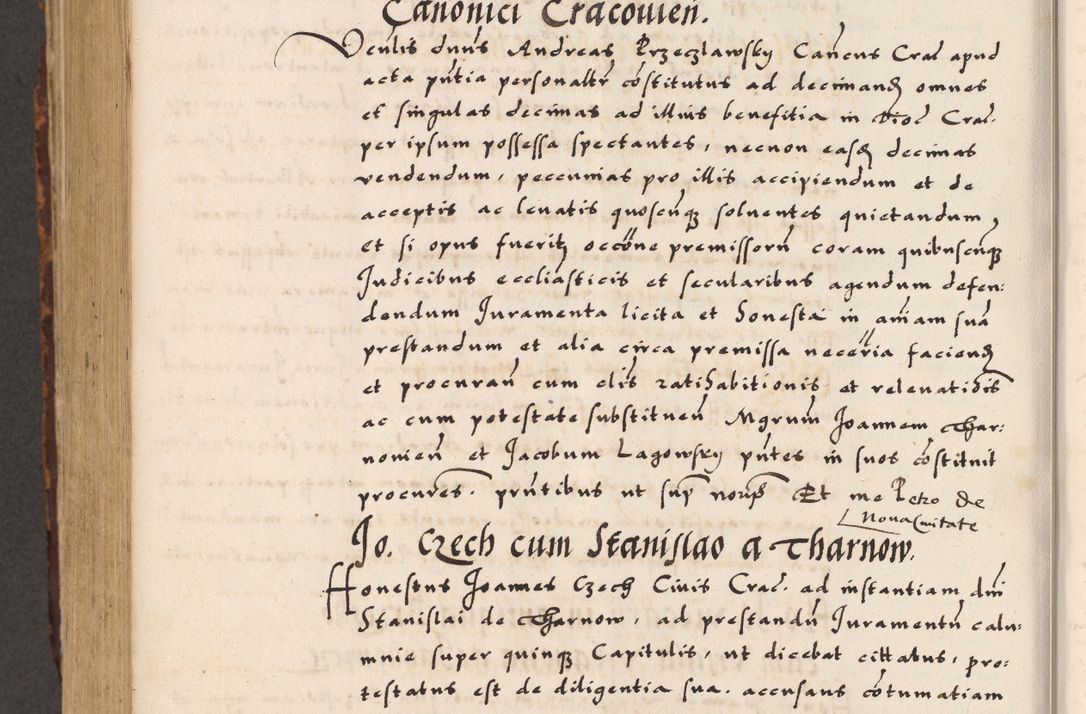 Canonici Cracouien̄.
Veñlis dnūs Andreas Przeczlawsky Cañcus Crac̄ apud
acta pñtia personaltr̄ cōstitutus ad decimandꝫ omnes
et singulas decimas ad illius benefitia in Dioc̄ Crac̄.
per ipsum possessa spectantes, necnon easdꝫ decimas
vendendum, peccunias pro illis accipiendum et de
acceptis ac leuatis quoscūqꝫ soluentes quietandum,
et si opus fueritꝫ occōne premissorū coram quibuscūqꝫ
Judicibus eccliasticis et secularibus agendum defen:
dendum Juramenta licita et honesta in aīam suā
prestandum et alia circa premissa necēria faciendꝫ
et procuran̄ cum clīs ratihabitionis et releuatiōis
ac cum potestate substituen̄ Mgrum̄ Joannem Thar:
nouien̄ et Jacobum Lagowsky pñtes in suos cōstituit
procures. prn̄tibus ut sup̄ norꝫ Et me Petro de
Noua Ciuitate
Jo. Czech cum Stanislao a Tharnow.
Honestus Joannes Czech Ciuis Crac̄. ad instantiam dnī
Stanislai de Tharnow, ad prestandū Juramentū calu:
mnie super quinqꝫ Capitulis, ut dicebat cittatus, pro:
testatus est de diligentia sua. accusans cōtumatiam